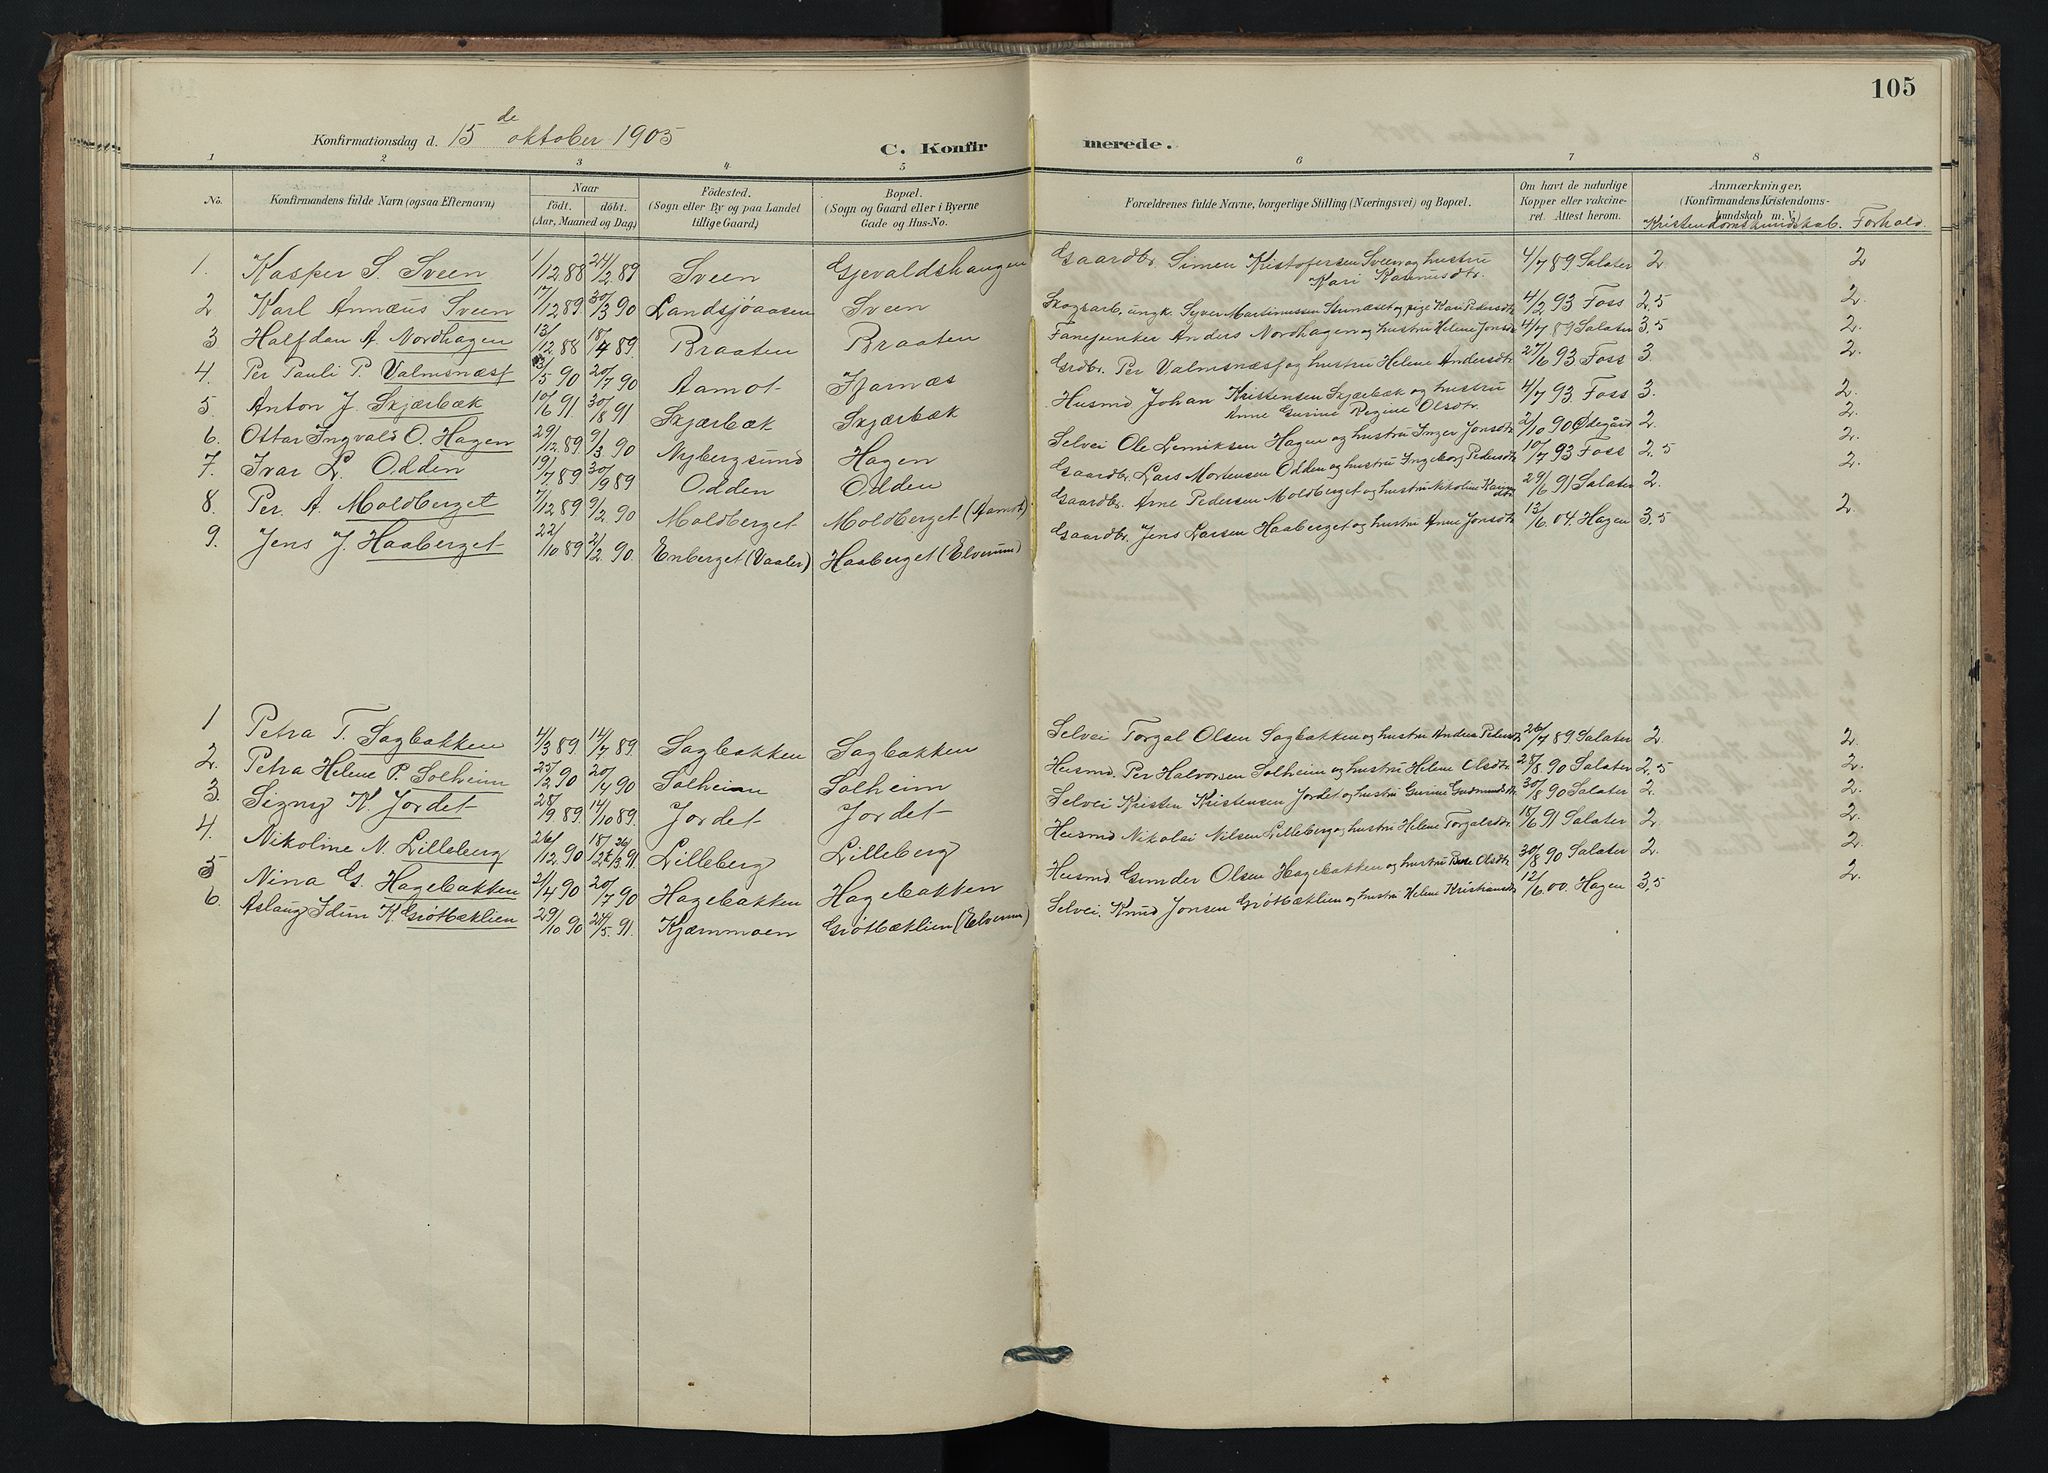 105
Konfirmationsdag d. 15de oktober 1905
C. Konfirmerede.
1 2 3 4 5 6 7 8
No. Konfirmandens fulde Navn (ogsaa Efternavn) Naar født. døbt. (Aar, Maaned og Dag) Födested. (Sogn eller By og paa Landet tillige Gaard) Bopæl. (Sogn og Gaard eller i Byerne Gade og Hus-No. Forældrenes fulde Navne, borgerlige Stilling (Næringsvei) og Bopæl. Om havt de naturlige Kopper eller vakcineret. Attest herom. Anmærkninger, (Konfirmandens Kristendomskundskab m. V.) Kristendomskundskab. Forhold.
1. Kasper S. Sveen 1/12 88 24/2 89 Sveen Gjevaldshaugen Gaardbr. Simen Kristofersen Sveen og hustru Kari Rasmusdtr. 4/7 89 Salater 2. 2
2 Karl Annæus Sveen 17/12 89 30/3 90 Landsjøaasen Sveen Skogsarb, ungk. Syver Martinussen og pige Kari Pedersdtr 4/2 93 Foss 2,5 2.
3 Halfdan A. Nordhagen 13/12 88 18/4 89 Braaten Braaten Fanejunker Anders Nordhagen og hustru Helene Jonsdr 4/7 89 Salater 3,5 2.
4. Per Pauli P. Valmsnæsf /5 90 20/7 90 Aamot Fjarnæs Grdbr. Per Valmsnæsf og hustru Helene Andersdtr 27/6 93 Foss 3. 2.
5 Anton J. Skjærbæk 10/6 91 30/8 91 Skjærbæk Skjærbæk Husmd Johan Kristensen Skjærbæk og hustru Anne Gurine Regine Olsdtr. 4/7 93 Foss 3. 2.
6. Ottar Ingvald O. Hagen 29/12 89. 9/3 90 Nybergsund Hagen Selvei Ole Hagen og hustru Inger Jonsdtr 2/10 90 Ødegård 2. 2.
7. Ivar L. Odden 19/7 89 30/9 89 Odden Odden Gaardbr. Lars Mortensen Odden og hustru Ingeborg Pedersdtr 10/7 93 Foss 2,5 2.
8. Per. A. Moldberget 7/12 89 9/2. 90 Moldberget Moldberget (Aamot) Gaardbr. Arne Pedersen Moldberget og hustru Nikoline 29/6 91 Salater 2. 2.
9. Jens J. Haaberget 22/10 89 2/2. 90. Enberget (Vaaler) Haaberget (Elverum) Gaardbr. Jens Larsen Haaberget og hustru Anne Jonsdtr 13/6. 04. Hagen 3,5 2
1 Petra T. Sagbakken 4/3 89 14/7 89 Sagbakken Sagbakken Selvei Torgal Olsen Sagbakken og hustru Andrea Pedersdtr 26/7 89 Salater 2. 2.
2. Petra Helene P. Solheim 25/2 90 20/4 90 Solheim Solheim Husmd. Per Halvorsen Solheim og hustru Helene Olsdtr. 28/8. 90 Salater 2,5 2.
3. Signy K. Jordet 28/9 89. 14/10 89 Jordet Jordet Selvei Kristen Kristensen Jordet og hustru Gurine Gudmundsdtr 30/8 90 Salater 2. 2.
4. Nikoline N. Lilleberg 26/12. 90 18/2 26/3 91 Lilleberg Lilleberg Husmd Nikolai Nilsen Lilleberg og hustru Helene Torgalsdtr. 18/6 91 Salater 2. 2.
5 Nina G. Hagebakken 2/4 90 20/7 90 Hagebakken Hagebakken Husmd. Gunder Olsen Hagebakken og hustru Olsdtr 30/8 90 Salater 2. 2.
6. Aslaug Idun K. Grøtbæklien 29/10 90 24/5. 91. Kjærnmoen Grøtbæklien (Elverum) Selvei. Knud Jonsen Grøtbæklien og hustru Helene Kristiansdtr 12/6. 00. Hagen 3,5 2.